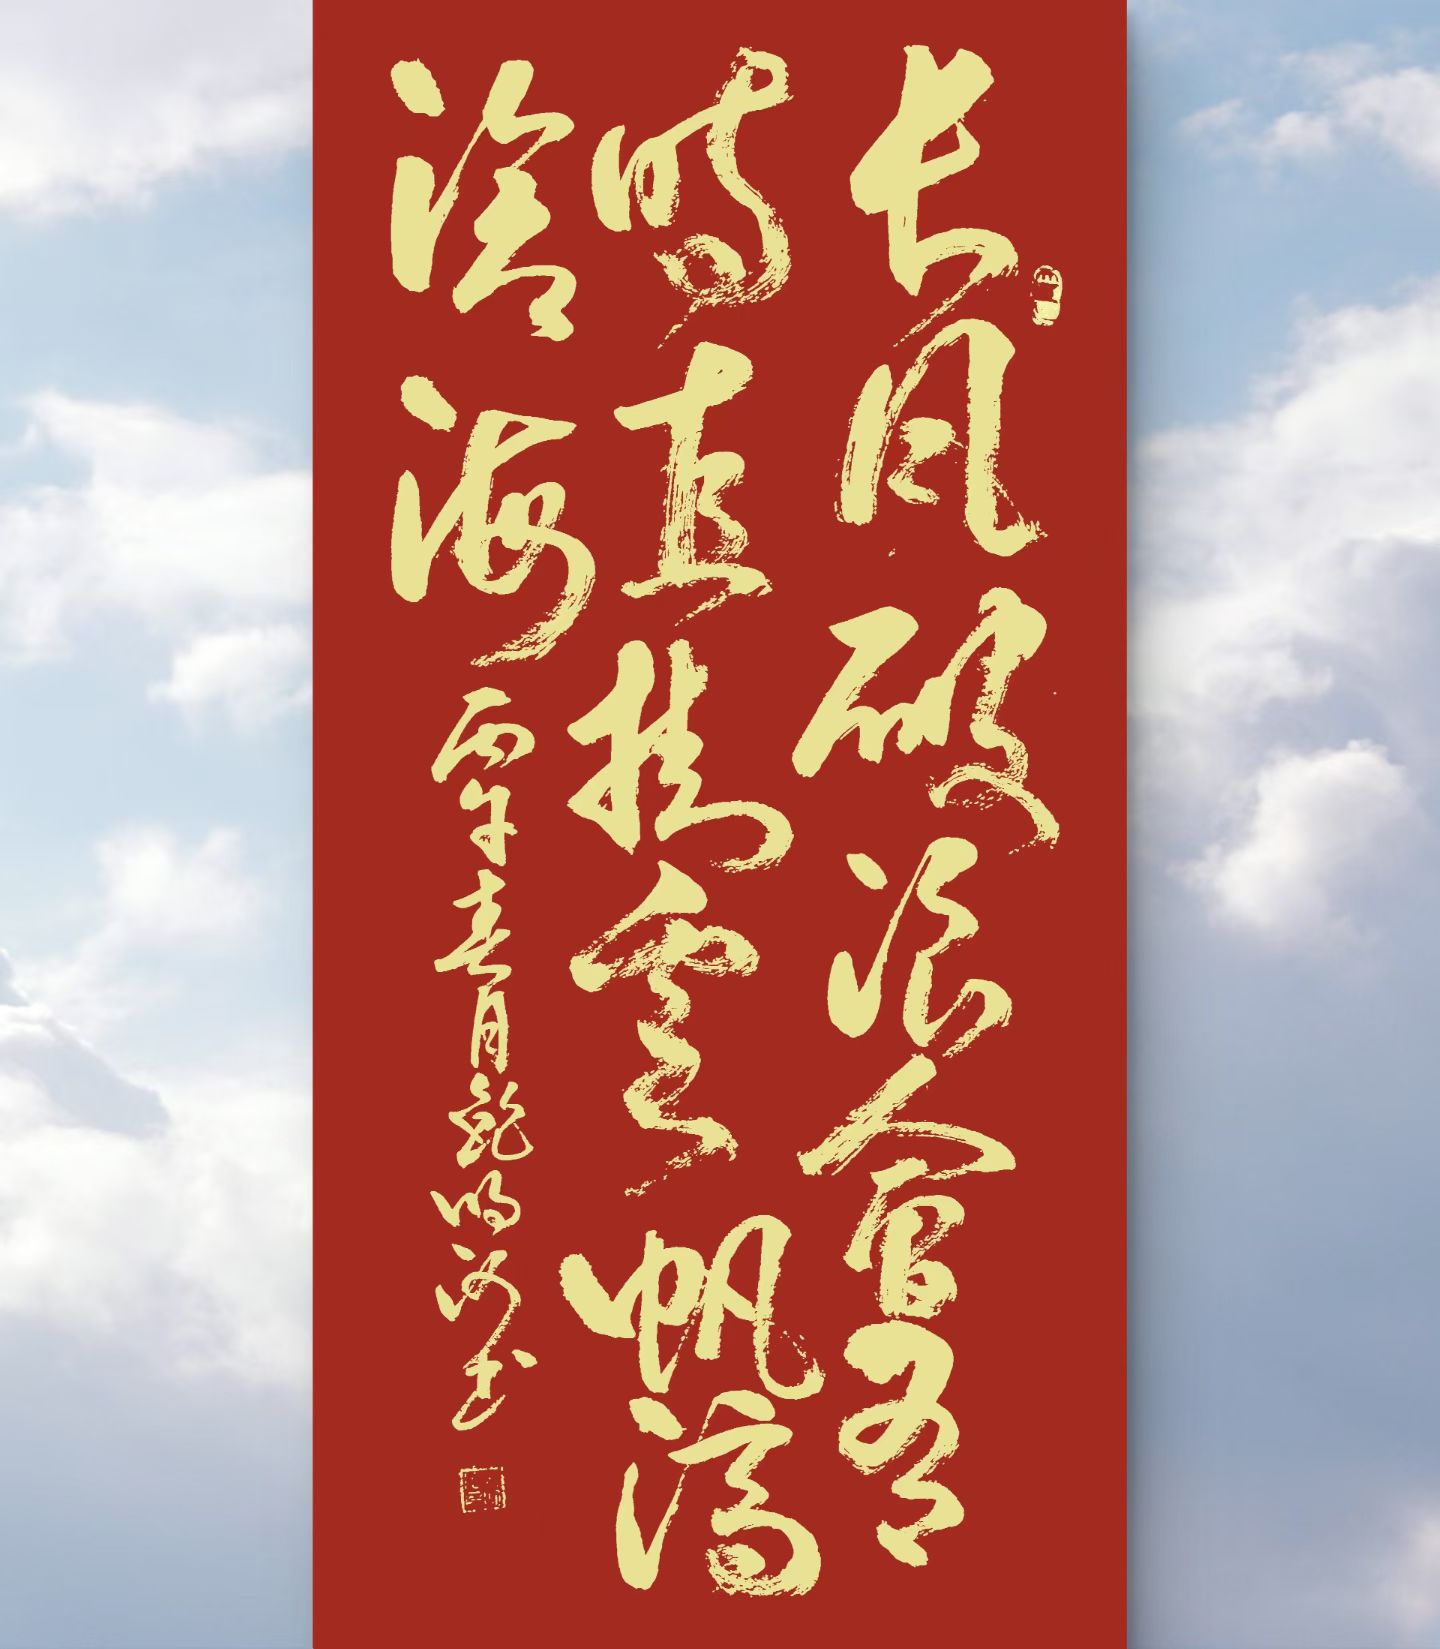 长风破浪会有
时直挂云帆济
沧海
丙午春月鲍明河书